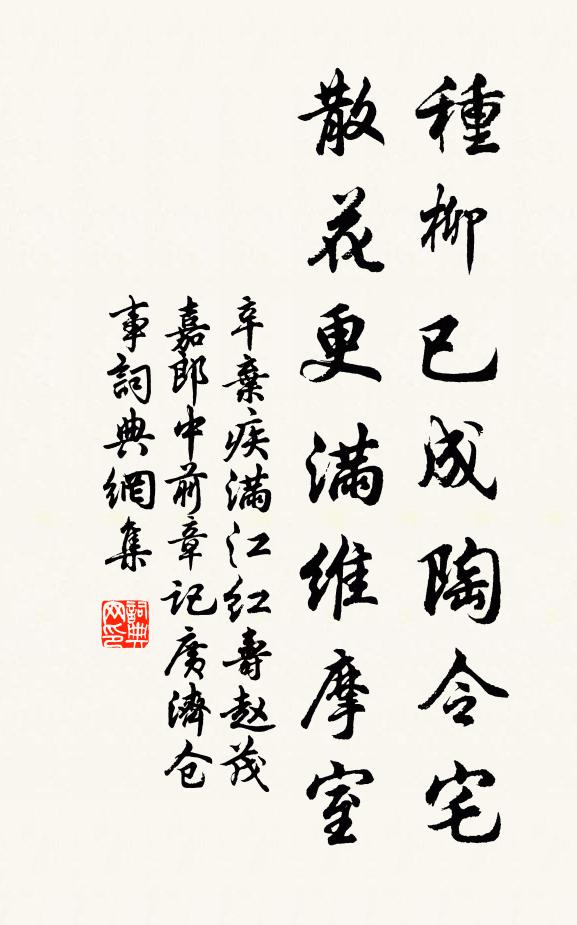 種柳已成陶令宅
散花更满維摩室
辛棄疾满江红壽赵茂
嘉郎中前章记廣濟仓
事詞典網集
詞典
网印